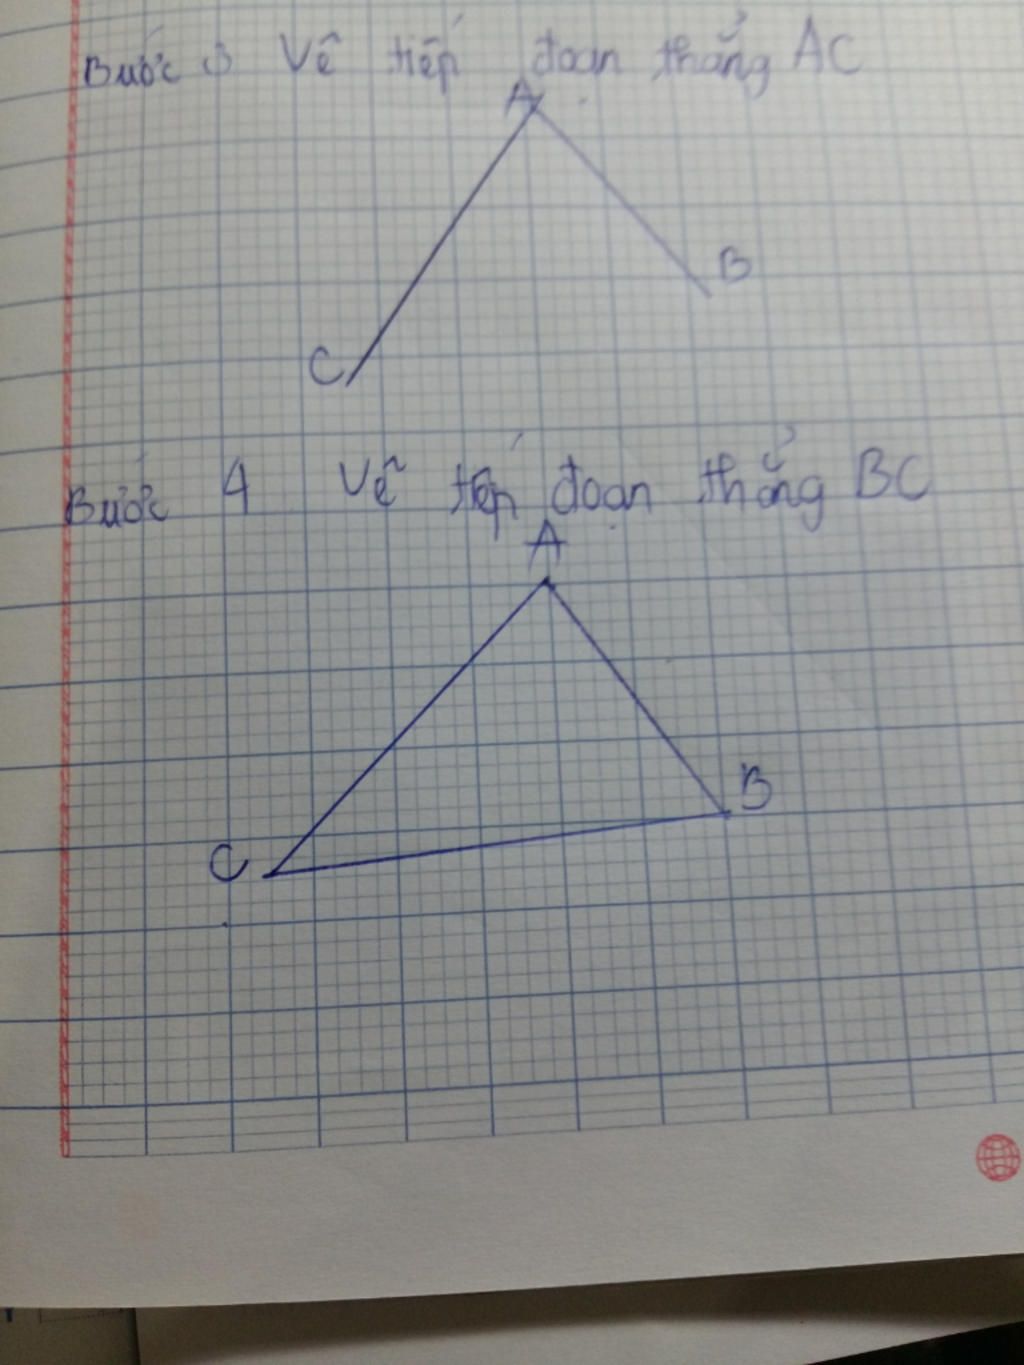 Bước 3 Vẽ tiếp đoạn thẳng AC
A
B
C
Bước 4 Vẽ tiếp đoạn thẳng BC
A
B
C